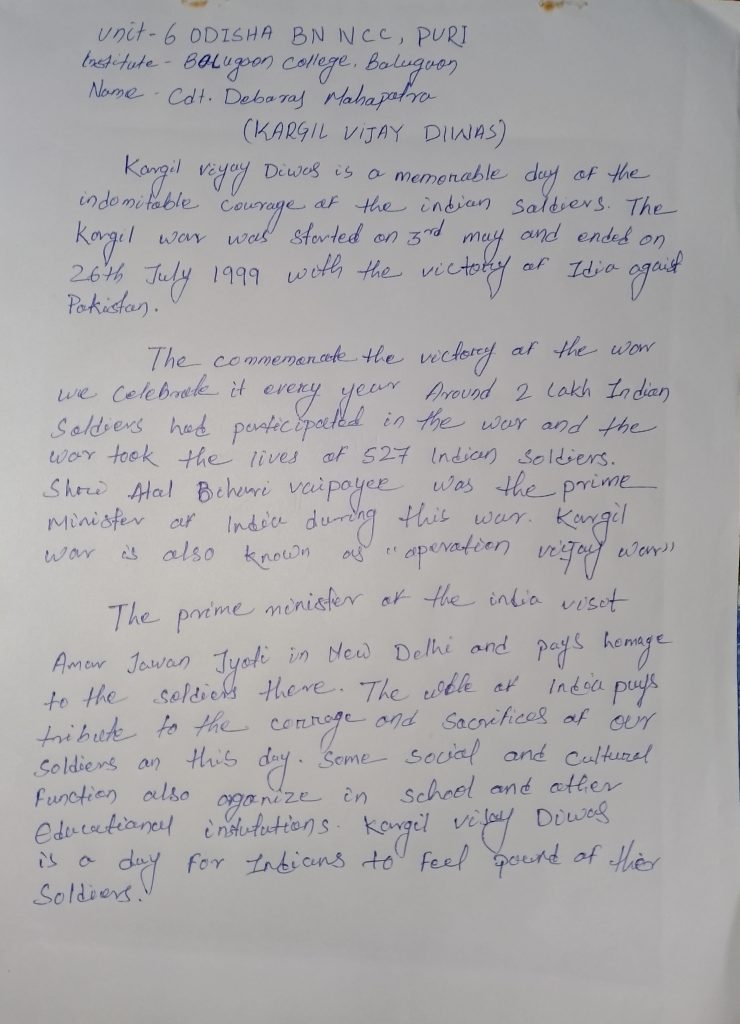 Unit-6 ODISHA BN NCC, PURI
Institute - BALugaon College, Balugaon
Name - Cdt. Debaraj Mahapatra
(KARGIL VIJAY DIWAS)
Kargil vijay Diwas is a memorable day of the
indomitable courage of the indian Saldiers. The
Kargil war was started on 3rd may and ended on
26th July 1999 with the victory of Idia agaist
Pakistan.
The commemorate the victory of the war
we Celebrate it every year Around 2 Lakh Indian
Soldiers had participated in the war and the
war took the lives of 527 Indian Soldiers.
Shri Atal Bihari vajpayee was the prime
Minister of India during this war. Kargil
war is also known as "operation vijay war"
The prime minister of the india visit
Amar Jawan Jyoti in New Delhi and pays homage
to the soldiers there. The whole of India pays
tribute to the courage and Sacrifices of our
Soldiers on this day. Some social and cultural
Function also oganize in school and other
Educational institutions. Kargil vijay Diwas
is a day for Indians to feel pound of their
Soldiers.